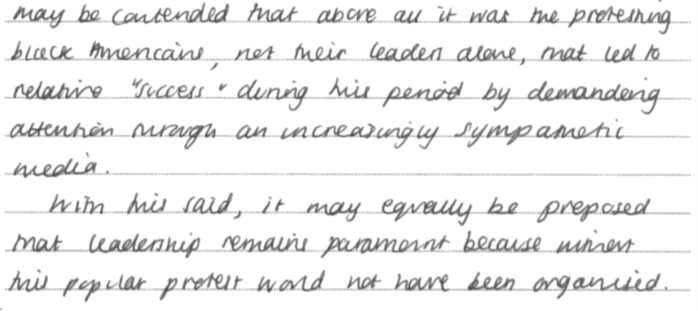 may be contended that above all it was the protesting
black Americans, not their leaders alone, that led to
relative "success" during this period by demanding
attention through an increasingly sympathetic
media.
With this said, it may equally be proposed
that leadership remains paramount because without
this popular protest would not have been organised.